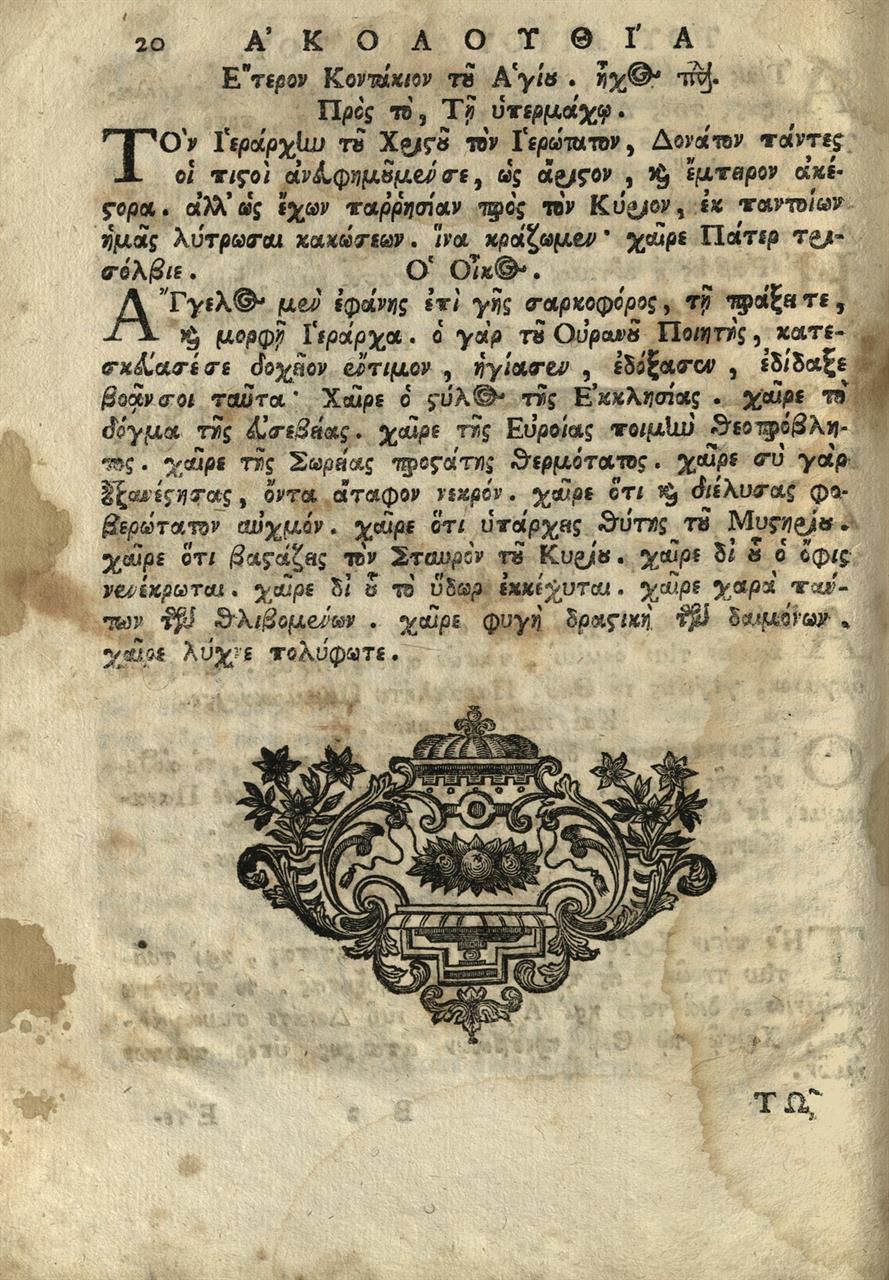 20 Ἀ Κ Ο Λ Ο Υ Θ Ί Α
Ἕτερον Κοντάκιον τοῦ Ἁγίου. ἦχος πλ.
Πρὸς τὸ, Τῇ ὑπερμάχῳ.
ΤΟν Ἱεράρχην τοῦ Χριστοῦ τὸν Ἱερώτατον, Δονάτον πάντες
οἱ πιστοὶ ἀνευφημοῦμέν σε, ὡς ἄριστον, καὶ ἔμπειρον ἀκέ-
στορα. ἀλλ' ὡς ἔχων παῤῥησίαν πρὸς τὸν Κύριον, ἐκ παντοίων
ἡμᾶς λύτρωσαι κακώσεων. ἵνα κράζωμεν· χαῖρε Πάτερ τρι-
σόλβιε. Ὁ Οἶκος.
ἌΓγελος μὲν ἐφάνης ἐπὶ γῆς σαρκοφόρος, τῇ πράξει τε,
καὶ μορφῇ Ἱεράρχα. ὁ γὰρ τοῦ Οὐρανοῦ Ποιητὴς, κατε-
σκεύασέ σε δοχεῖον ἔντιμον, ἡγίασεν, ἐδόξασεν, ἐδίδαξε
βοᾷν σοι ταῦτα· Χαῖρε ὁ στύλος τῆς Ἐκκλησίας. χαῖρε τὸ
δόγμα τῆς εὐσεβείας. χαῖρε τῆς Εὐροίας ποιμὴν θεοπρόβλη-
τος. χαῖρε τῆς Σωρείας προστάτης θερμότατος. χαῖρε σὺ γὰρ
ἐξανέστησας, ὄντα ἄταφον νεκρόν. χαῖρε ὅτι καὶ διέλυσας φο-
βερώτατον αὐχμόν. χαῖρε ὅτι ὑπάρχεις θύτης τοῦ Μυστηρίου.
χαῖρε ὅτι βαστάζεις τὸν Σταυρὸν τοῦ Κυρίου. χαῖρε δι' οὗ ὁ ὄφις
νενέκρωται. χαῖρε δι' οὗ τὸ ὕδωρ ἐκκέχυται. χαῖρε χαρὰ πάν-
των τῶν θλιβομένων. χαῖρε φυγὴ δραστικὴ τῶν δαιμόνων.
χαῖρε λύχνε πολύφωτε.
ΤΩ͂,